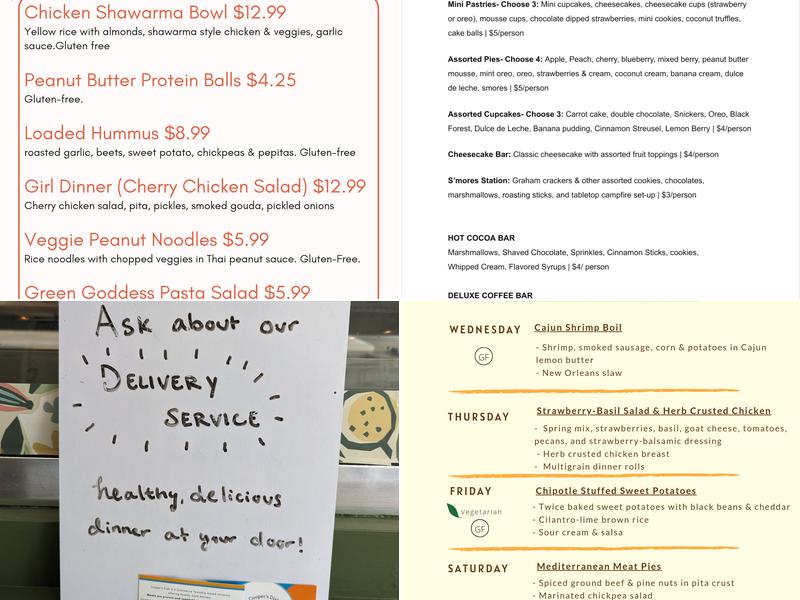 Chicken Shawarma Bowl $12.99
Yellow rice with almonds, shawarma style chicken & veggies, garlic
sauce.Gluten free
Peanut Butter Protein Balls $4.25
Gluten-free.
Loaded Hummus $8.99
roasted garlic, beets, sweet potato, chickpeas & pepitas. Gluten-free
Girl Dinner (Cherry Chicken Salad) $12.99
Cherry chicken salad, pita, pickles, smoked gouda, pickled onions
Veggie Peanut Noodles $5.99
Rice noodles with chopped veggies in Thai peanut sauce. Gluten-Free.
Green Goddess Pasta Salad $5.99
Mini Pastries- Choose 3: Mini cupcakes, cheesecakes, cheesecake cups (strawberry
or oreo), mousse cups, chocolate dipped strawberries, mini cookies, coconut truffles,
cake balls | $5/person
Assorted Pies- Choose 4: Apple, Peach, cherry, blueberry, mixed berry, peanut butter
mousse, mint oreo, oreo, strawberries & cream, coconut cream, banana cream, dulce
de leche, smores | $5/person
Assorted Cupcakes- Choose 3: Carrot cake, double chocolate, Snickers, Oreo, Black
Forest, Dulce de Leche, Banana pudding, Cinnamon Streusel, Lemon Berry | $4/person
Cheesecake Bar: Classic cheesecake with assorted fruit toppings | $4/person
S'mores Station: Graham crackers & other assorted cookies, chocolates,
marshmallows, roasting sticks, and tabletop campfire set-up | $3/person
HOT COCOA BAR
Marshmallows, Shaved Chocolate, Sprinkles, Cinnamon Sticks, cookies,
Whipped Cream, Flavored Syrups | $4/ person
DELUXE COFFEE BAR
Ask about our
DELIVERY
SERVICE
healthy, delicious
dinner at your door!
WEDNESDAY
GF
Cajun Shrimp Boil
- Shrimp, smoked sausage, corn & potatoes in Cajun
lemon butter
- New Orleans slaw
THURSDAY
Strawberry-Basil Salad & Herb Crusted Chicken
- Spring mix, strawberries, basil, goat cheese, tomatoes,
pecans, and strawberry-balsamic dressing
- Herb crusted chicken breast
- Multigrain dinner rolls
FRIDAY
Vegetarian
GF
Chipotle Stuffed Sweet Potatoes
- Twice baked sweet potatoes with black beans & cheddar
- Cilantro-lime brown rice
- Sour cream & salsa
SATURDAY
Mediterranean Meat Pies
- Spiced ground beef & pine nuts in pita crust
- Marinated chickpea salad